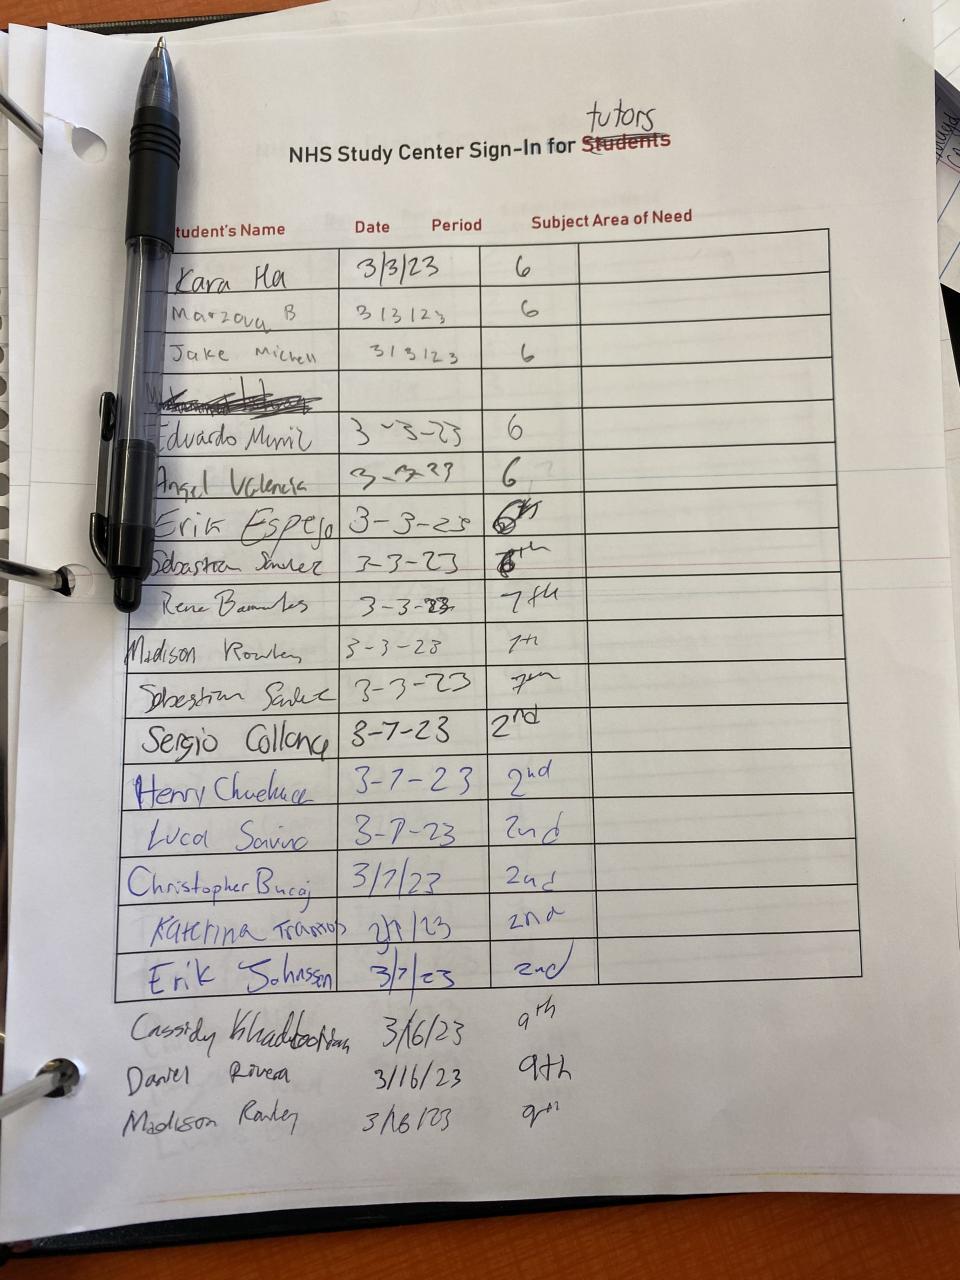 tutors
NHS Study Center Sign-In for Students
tudent's Name Date Period Subject Area of Need
Kara Ha 3/3/23 6
Marzova B 3/3/23 6
Jake Michell 3/3/23 6
Eduardo 3-3-23 6
Angel Valencia 3-3-23 6
Erik Espejo 3-3-23 6th
Sebastian 3-3-23
Rene 3-3-23 7th
Madison Rowley 3-3-23 7th
Sebastian 3-3-23 7th
Sergio 3-7-23 2nd
Henry 3-7-23 2nd
Luca Savino 3-7-23 2nd
Christopher Bucaj 3/7/23 2nd
Katerina /23 2nd
Erik Johnssen 3/7/23 2nd
Cassidy 3/16/23 9th
Daniel Rivera 3/16/23 9th
Madison Rowley 3/16/23 9th